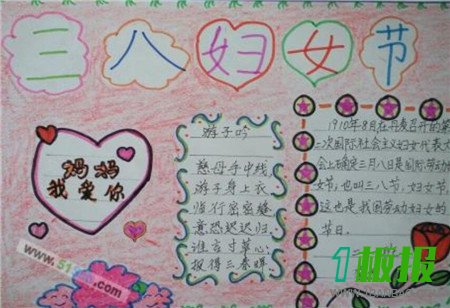 三八妇女节
妈妈
我爱你
游子吟
慈母手中线
游子身上衣
临行密密缝
意恐迟迟归
谁言寸草心
报得三春晖
1910年8月在丹麦召开的第
二次国际社会主义妇女代表大
会上确定三月八日是国际劳动妇
女节，也叫三八节，妇女节，
这也是我国劳动妇女的
节日。
1板报